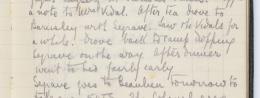 a note to Mrs Vidal. After tea drove to
Barnsley with Segrave. Saw the Vidals for
a while. Drove back to camp dropping
Segrave on the way. After dinner
went to bed fairly early
Segrave goes to Beaulieu tomorrow to